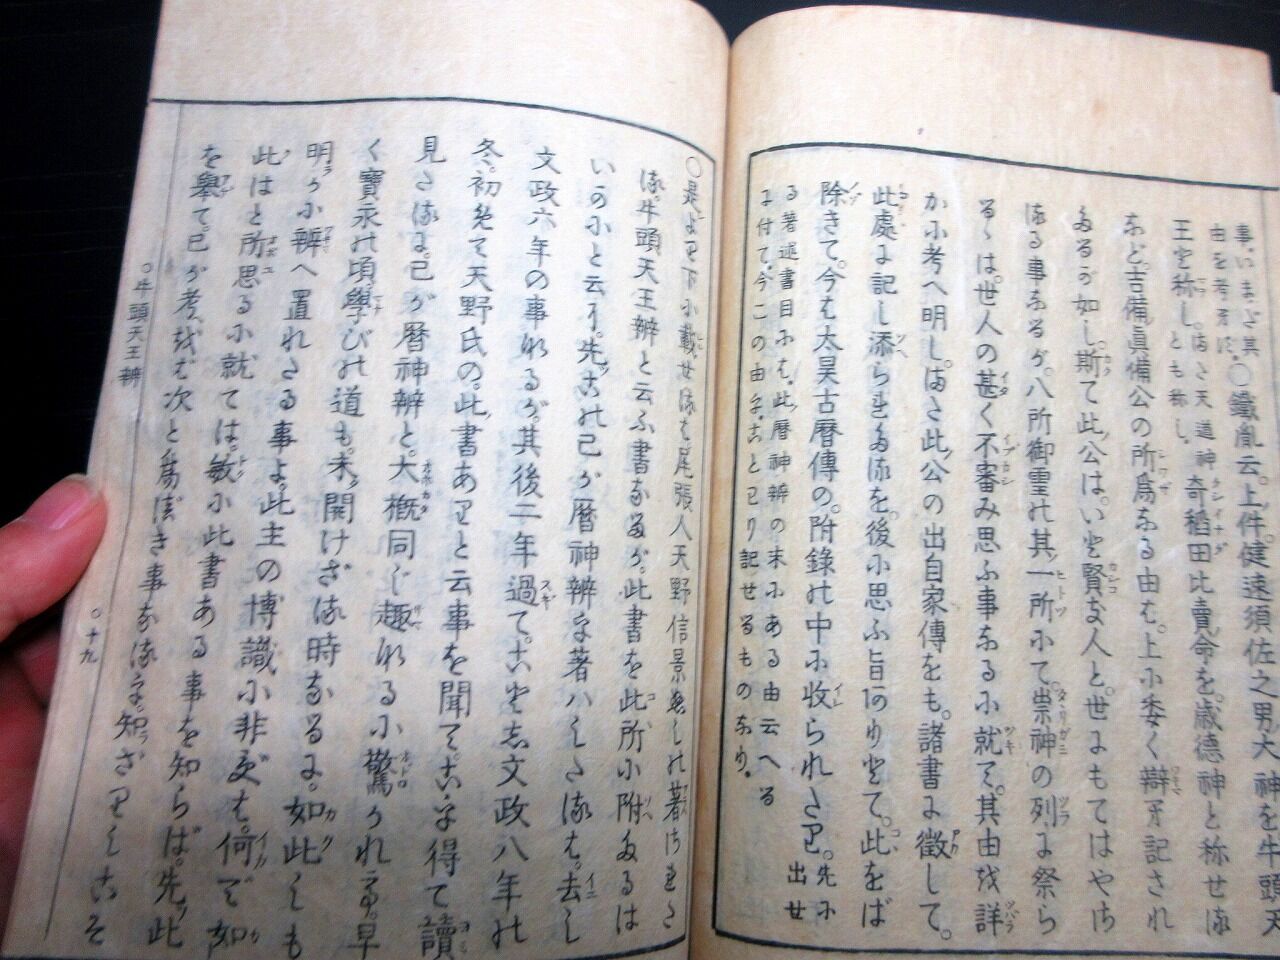 事。いまだ其由を考牙ば。〇鐵胤云。上件。健速須佐之男大神を牛頭天
王を称し。はた天道神とも称し。奇稻田比賣命を。歳德神と称せる
など。吉備眞備公の所爲なる由は。上に委く辯牙記され
たるが如し。斯て此公は。いと賢き人と。世にもてはやさ
るる事なるが。八所御霊の其一所にて。崇神の列に祭ら
るゝは。世人の甚く不審み思ふ事なるに就て。其由を詳
かに考へ明し。はた此公の出自家傳をも。諸書に徴して。
此處に記し添られたるを。後に思ふ旨ありとて。此をば
除きて。今は太昊古暦傳の。附錄の中に收られたり。先に出せ
る著述書目にも。此暦神辨の末にある由云へる
に付て。今この由を。ことわり記せるものなり。
〇是より下に載せるは尾張人天野信景ぬしの著はされた
る。牛頭天王辨と云ふ書なるが。此書を此所に附たるは
いかにと云に。先これ己が暦神辨を著ハしたるは。去し
文政六年の事なるが。其後二年過て。こぞし文政八年の
冬。初めて天野氏の。此書ありと云事を聞て。こを得て讀
見たるに。己が暦神辨と。大概同じ趣なるに驚かれて。早
く寶永の頃。學びの道も。未開けざる時なるに。如此しも
明らかに辨へ置れたる事よ。此主の博識に非ずは。何で如
此はと所思るに就ては。敏に此書ある事を知らば。先此
を擧て。己が考をば次と爲べき事なるを。知ざりしこそ
〇牛頭天王辨
〇十九